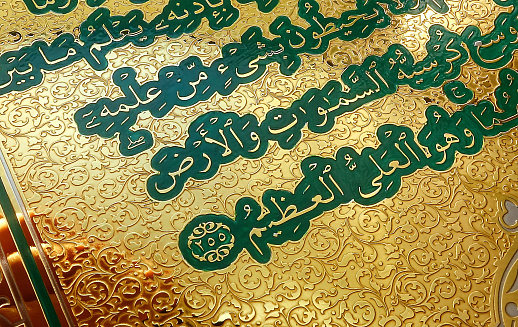 بِإِذْنِهِۦ يَعْلَمُ مَا بَيْنَ
يُحِيطُونَ بِشَىْءٍ مِّنْ عِلْمِهِۦٓ
كُرْسِيُّهُ ٱلسَّمَٰوَٰتِ وَٱلْأَرْضَ
وَهُوَ ٱلْعَلِىُّ ٱلْعَظِيمُ ٢٥٥